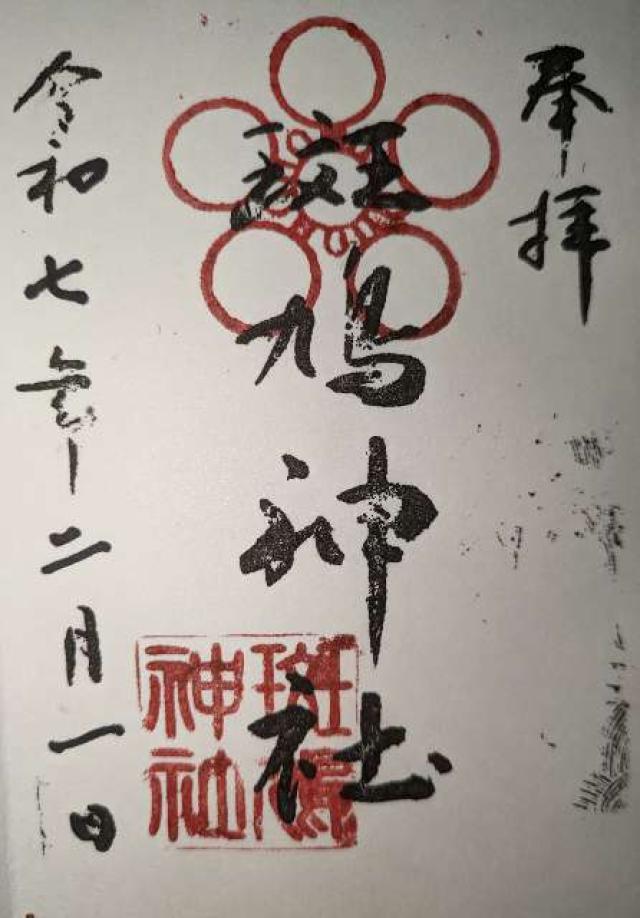 奉拝
斑鳩神社
斑鳩神社
令和七年二月一日